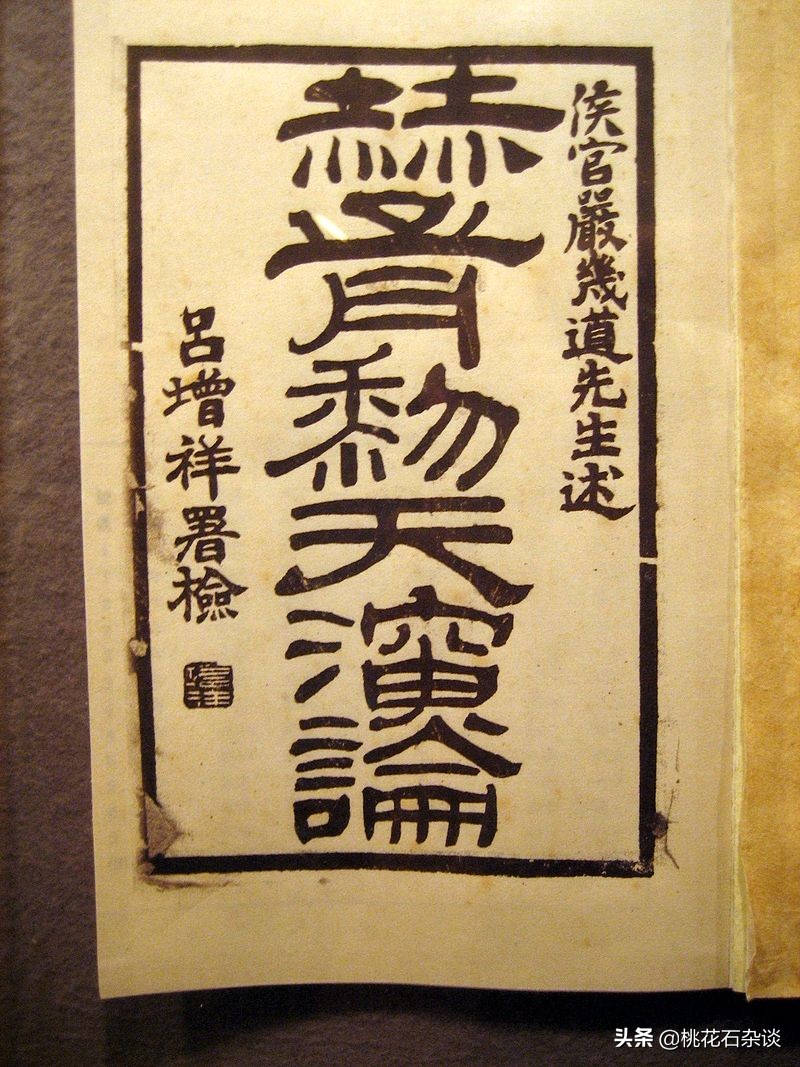 侯官嚴幾道先生述
赫胥黎天演論
呂增祥署檢
头条 @桃花石杂谈